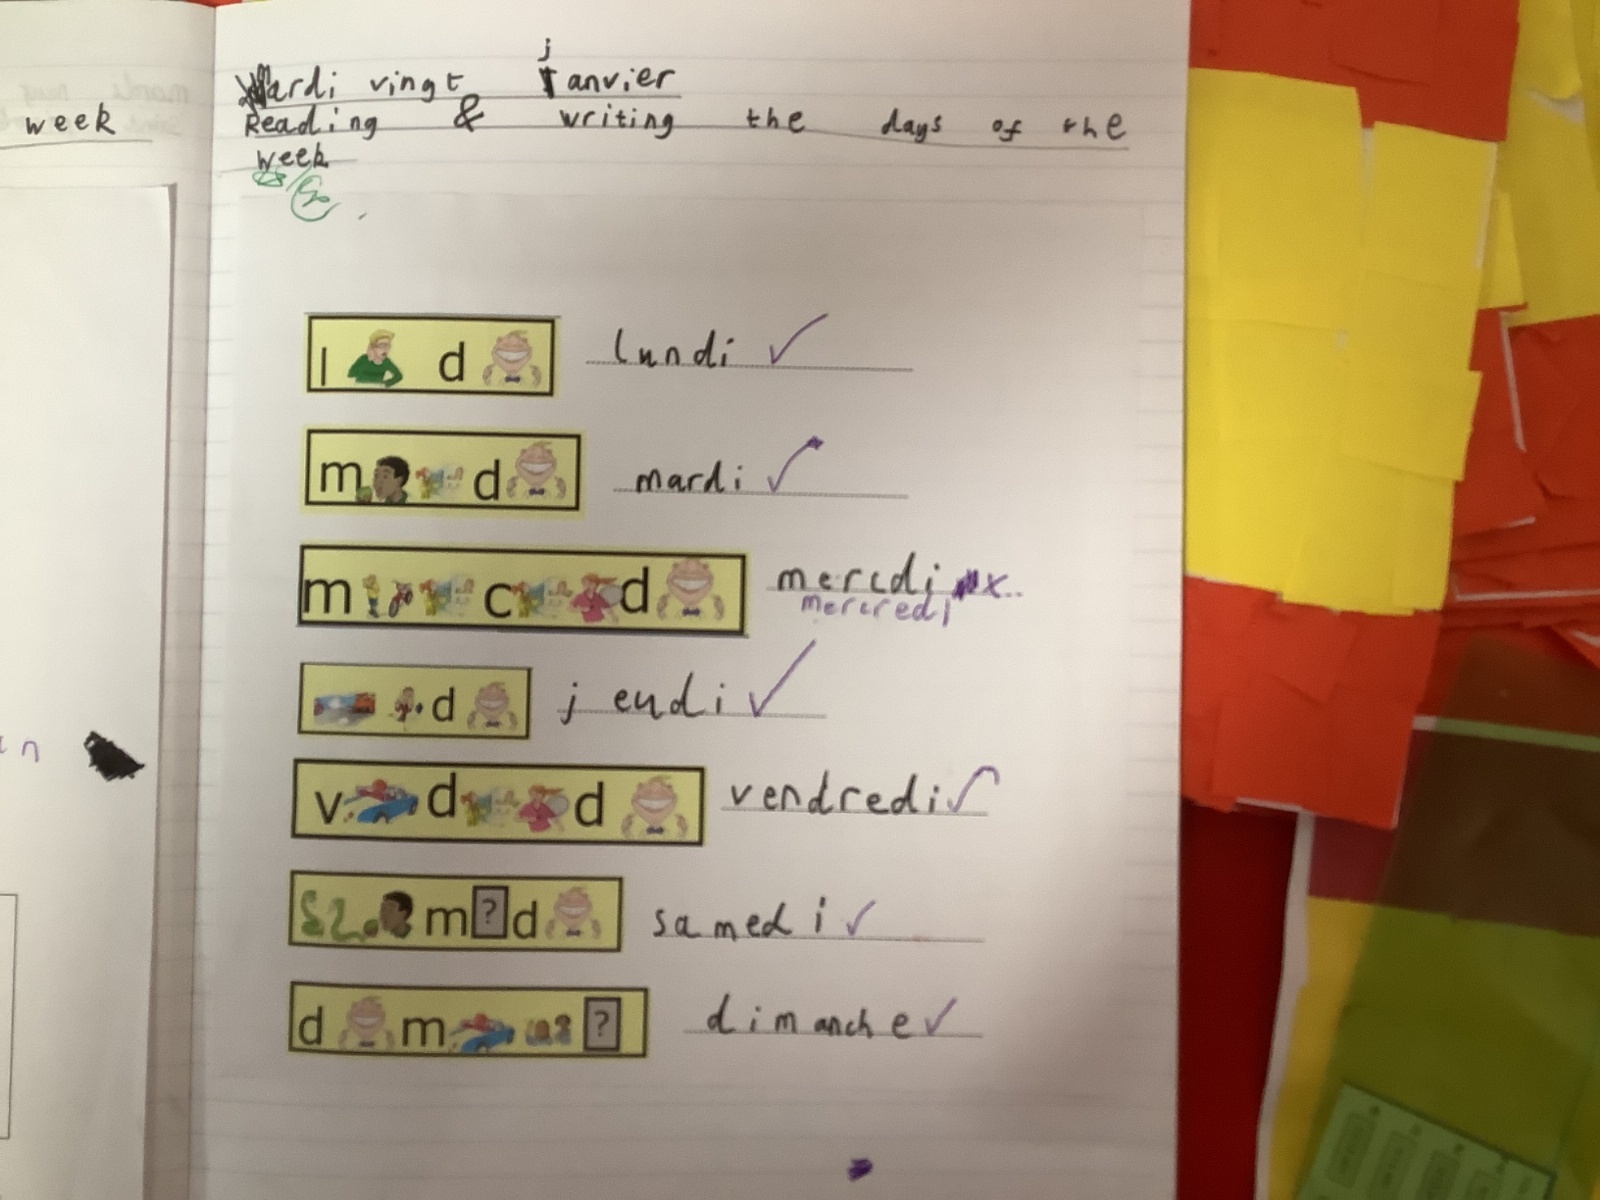 week
Mardi vingt janvier
Reading & writing the days of the
week
l d lundi
m d mardi
m c d mercdi x..
mercredi
d jeudi
v d d vendredi
m ? d samedi
d m ? dimanche
n